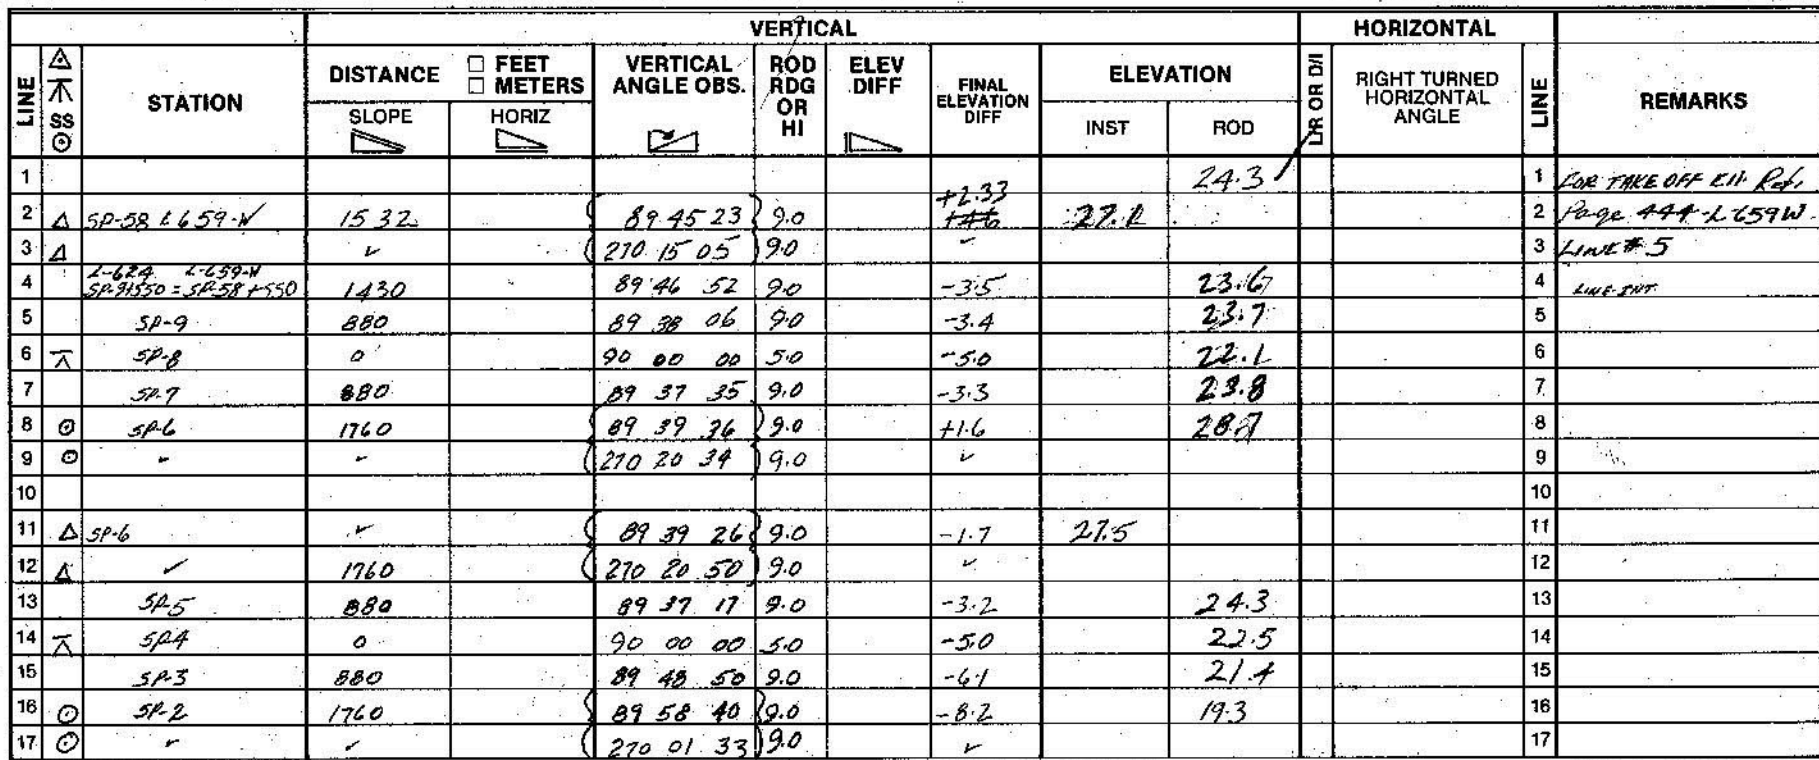 VERTICAL HORIZONTAL
LINE SS STATION DISTANCE FEET METERS SLOPE HORIZ VERTICAL ANGLE OBS. ROD RDG OR HI ELEV DIFF FINAL ELEVATION DIFF ELEVATION INST ROD L/R OR D/I RIGHT TURNED HORIZONTAL ANGLE LINE REMARKS
1 24.3 1 FOR TAKE OFF Ref.
2 Δ SP-58 L659-W 1532 89 45 23 9.0 +2.33 27.1 2 Page 444-L659W
3 Δ ✓ 270 15 05 9.0 ✓ 3 LINE # 5
4 L-624 L-659-W
SP-9+550 = SP-58+550 1430 89 46 52 9.0 -3.5 23.6 4 LINE-INT.
5 SP-9 880 89 38 06 9.0 -3.4 23.7 5
6 SP-8 0 90 00 00 5.0 -5.0 22.1 6
7 SP-7 880 89 37 35 9.0 -3.3 23.8 7
8 SP-6 1760 89 39 36 9.0 +1.6 28.7 8
9 ✓ ✓ 270 20 34 9.0 ✓ 9
10 10
11 Δ SP-6 ✓ 89 39 26 9.0 -1.7 27.5 11
12 Δ ✓ 1760 270 20 50 9.0 ✓ 12
13 SP-5 880 89 37 17 9.0 -3.2 24.3 13
14 SP-4 0 90 00 00 5.0 -5.0 22.5 14
15 SP-3 880 89 48 50 9.0 -6.1 21.4 15
16 SP-2 1760 89 58 40 9.0 -8.2 19.3 16
17 ✓ ✓ 270 01 33 9.0 ✓ 17